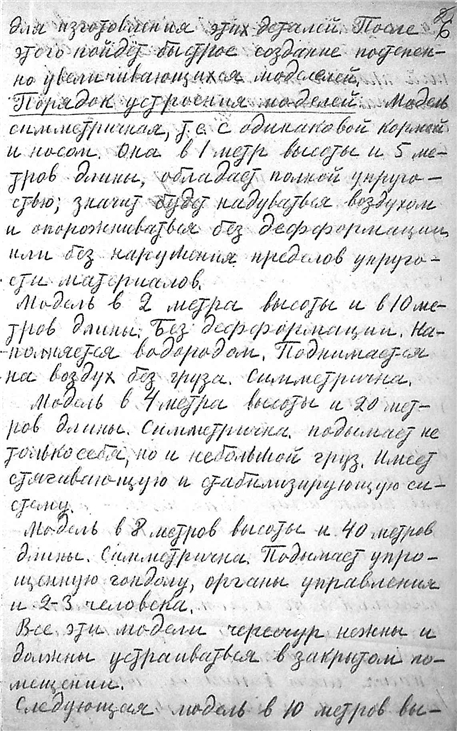 для изготовления этих деталей. После
этого пойдет быстрое создание постепен-
но увеличивающихся моделей.
Порядок устроения моделей. Модель
симметричная, т.е. с одинаковой кормой
и носом. Она в 1 метр высоты и 5 ме-
тров длины, обладает полной упруго-
стью; значит будет надуваться воздухом
и опорожниваться без дефформации,
или без нарушения пределов упруго-
сти материалов.
Модель в 2 метра высоты и в 10 ме-
тров длины. Без дефформации. На-
полняется водородом. Поднимается
на воздух без груза. Симметрична.
Модель в 4 метра высоты и 20 мет-
ров длины. Симметрична. подымает не
только себя, но и небольшой груз. Имеет
стягивающую и стабилизирующую си-
стему.
Модель в 8 метров высоты и 40 метров
длины. Симметрична. Подымает упро-
щенную гондолу, органы управления
и 2-3 человека.
Все эти модели чересчур нежны и
должны устраиваться в закрытом по-
мещении.
Следующая модель в 10 метров вы-